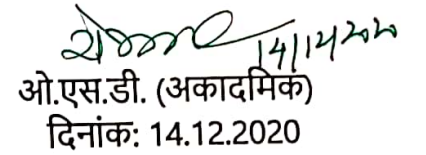 14/12/2020
ओ.एस.डी. (अकादमिक)
दिनांक: 14.12.2020